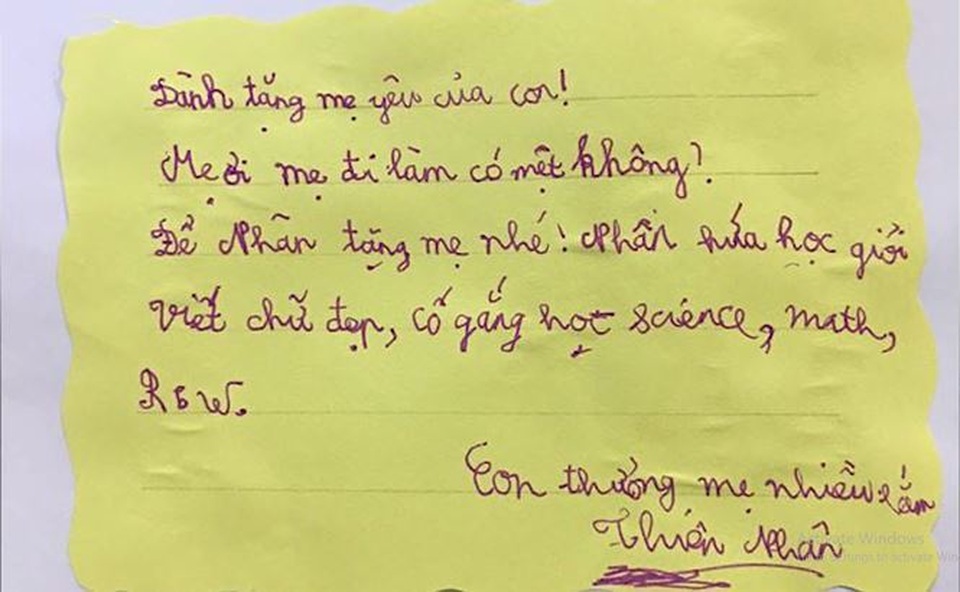 Dành tặng mẹ yêu của con!
Mẹ ơi mẹ đi làm có mệt không?
Để Nhân tặng mẹ nhé! Nhân hứa học giỏi
viết chữ đẹp, cố gắng học science, math,
R&W.
Con thương mẹ nhiều lắm
Thiện Nhân
Activate Windows
settings to activate Win